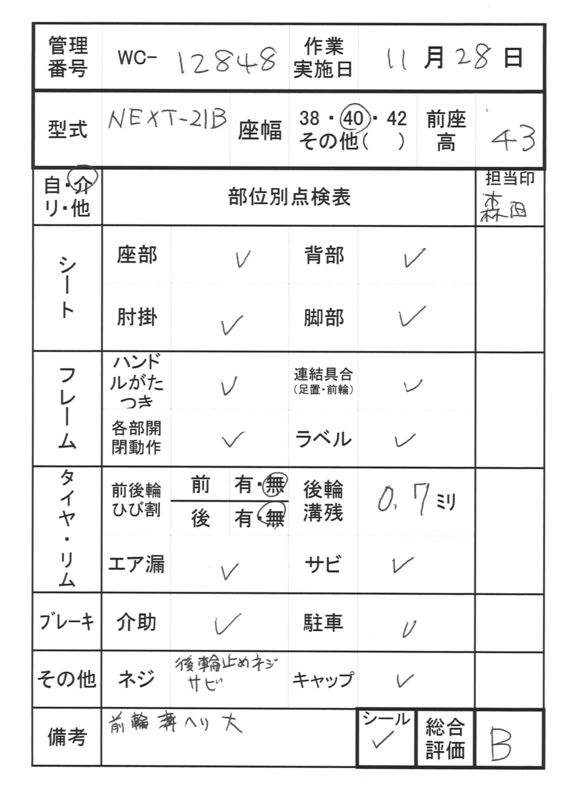 管理番号 WC- 12848 作業実施日 11月28日
型式 NEXT-21B 座幅 38・40・42 その他( ) 前座高 43
自・介 リ・他 部位別点検表 担当印 森田
シート 座部 ✓ 背部 ✓
肘掛 ✓ 脚部 ✓
フレーム ハンドルがたつき ✓ 連結具合(足置・前輪) ✓
各部開閉動作 ✓ ラベル ✓
タイヤ・リム 前後輪ひび割 前 有・無 後輪溝残 0.7ミリ
後 有・無
エア漏 ✓ サビ ✓
ブレーキ 介助 ✓ 駐車 ✓
その他 ネジ 後輪止めネジサビ キャップ ✓
備考 前輪 ヘリ大 シール ✓ 総合評価 B